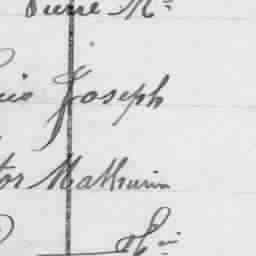 Pierre Mie
uis Joseph
tor Mathurin